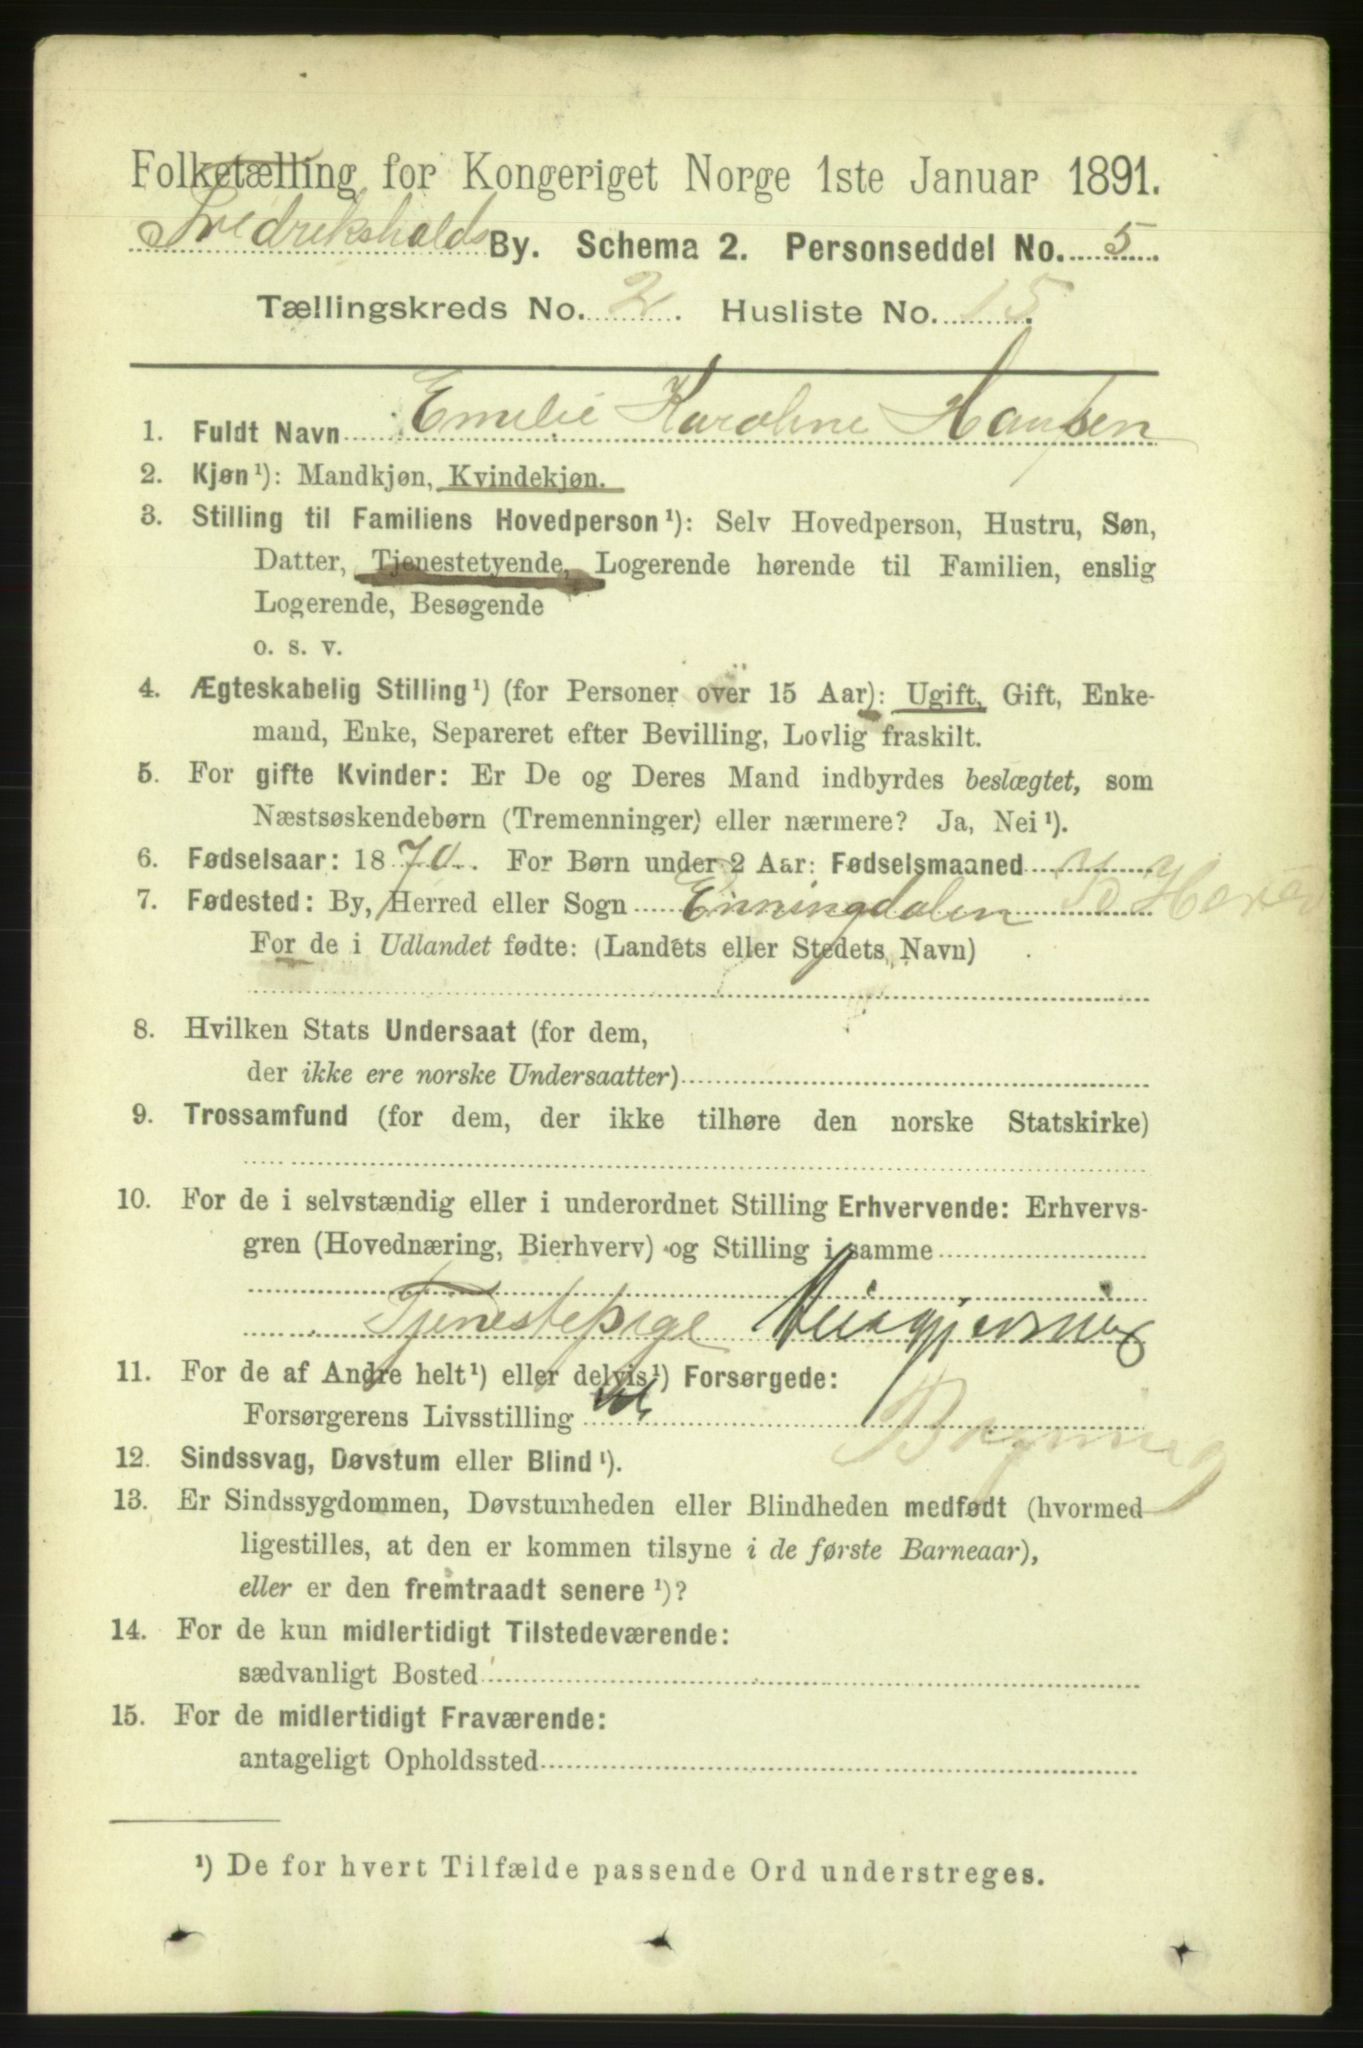 Folketælling for Kongeriget Norge 1ste Januar 1891.
Fredrikshalds By. Schema 2. Personseddel No. 5.
Tællingskreds No. 2. Husliste No. 15.
1. Fuldt Navn Emelie Karoline Hansen
2. Kjøn¹): Mandkjøn, Kvindekjøn.
3. Stilling til Familiens Hovedperson¹): Selv Hovedperson, Hustru, Søn,
Datter, Tjenestetyende, Logerende hørende til Familien, enslig
Logerende, Besøgende
o. s. v.
4. Ægteskabelig Stilling¹) (for Personer over 15 Aar): Ugift, Gift, Enke-
mand, Enke, Separeret efter Bevilling, Lovlig fraskilt.
5. For gifte Kvinder: Er De og Deres Mand indbyrdes beslægtet, som
Næstsøskendebørn (Tremenninger) eller nærmere? Ja, Nei¹).
6. Fødselsaar: 1870. For Børn under 2 Aar: Fødselsmaaned
7. Fødested: By, Herred eller Sogn Enningdalen
For de i Udlandet fødte: (Landets eller Stedets Navn)
8. Hvilken Stats Undersaat (for dem,
der ikke ere norske Undersaatter)
9. Trossamfund (for dem, der ikke tilhøre den norske Statskirke)
10. For de i selvstændig eller i underordnet Stilling Erhvervende: Erhvervs-
gren (Hovednæring, Bierhverv) og Stilling i samme
Tjenestepige Husgjerning
11. For de af Andre helt¹) eller delvis¹) Forsørgede:
Forsørgerens Livsstilling
12. Sindssvag, Døvstum eller Blind¹).
13. Er Sindssygdommen, Døvstumheden eller Blindheden medfødt (hvormed
ligestilles, at den er kommen tilsyne i de første Barneaar),
eller er den fremtraadt senere¹)?
14. For de kun midlertidigt Tilstedeværende:
sædvanligt Bosted
15. For de midlertidigt Fraværende:
antageligt Opholdssted
¹) De for hvert Tilfælde passende Ord understreges.